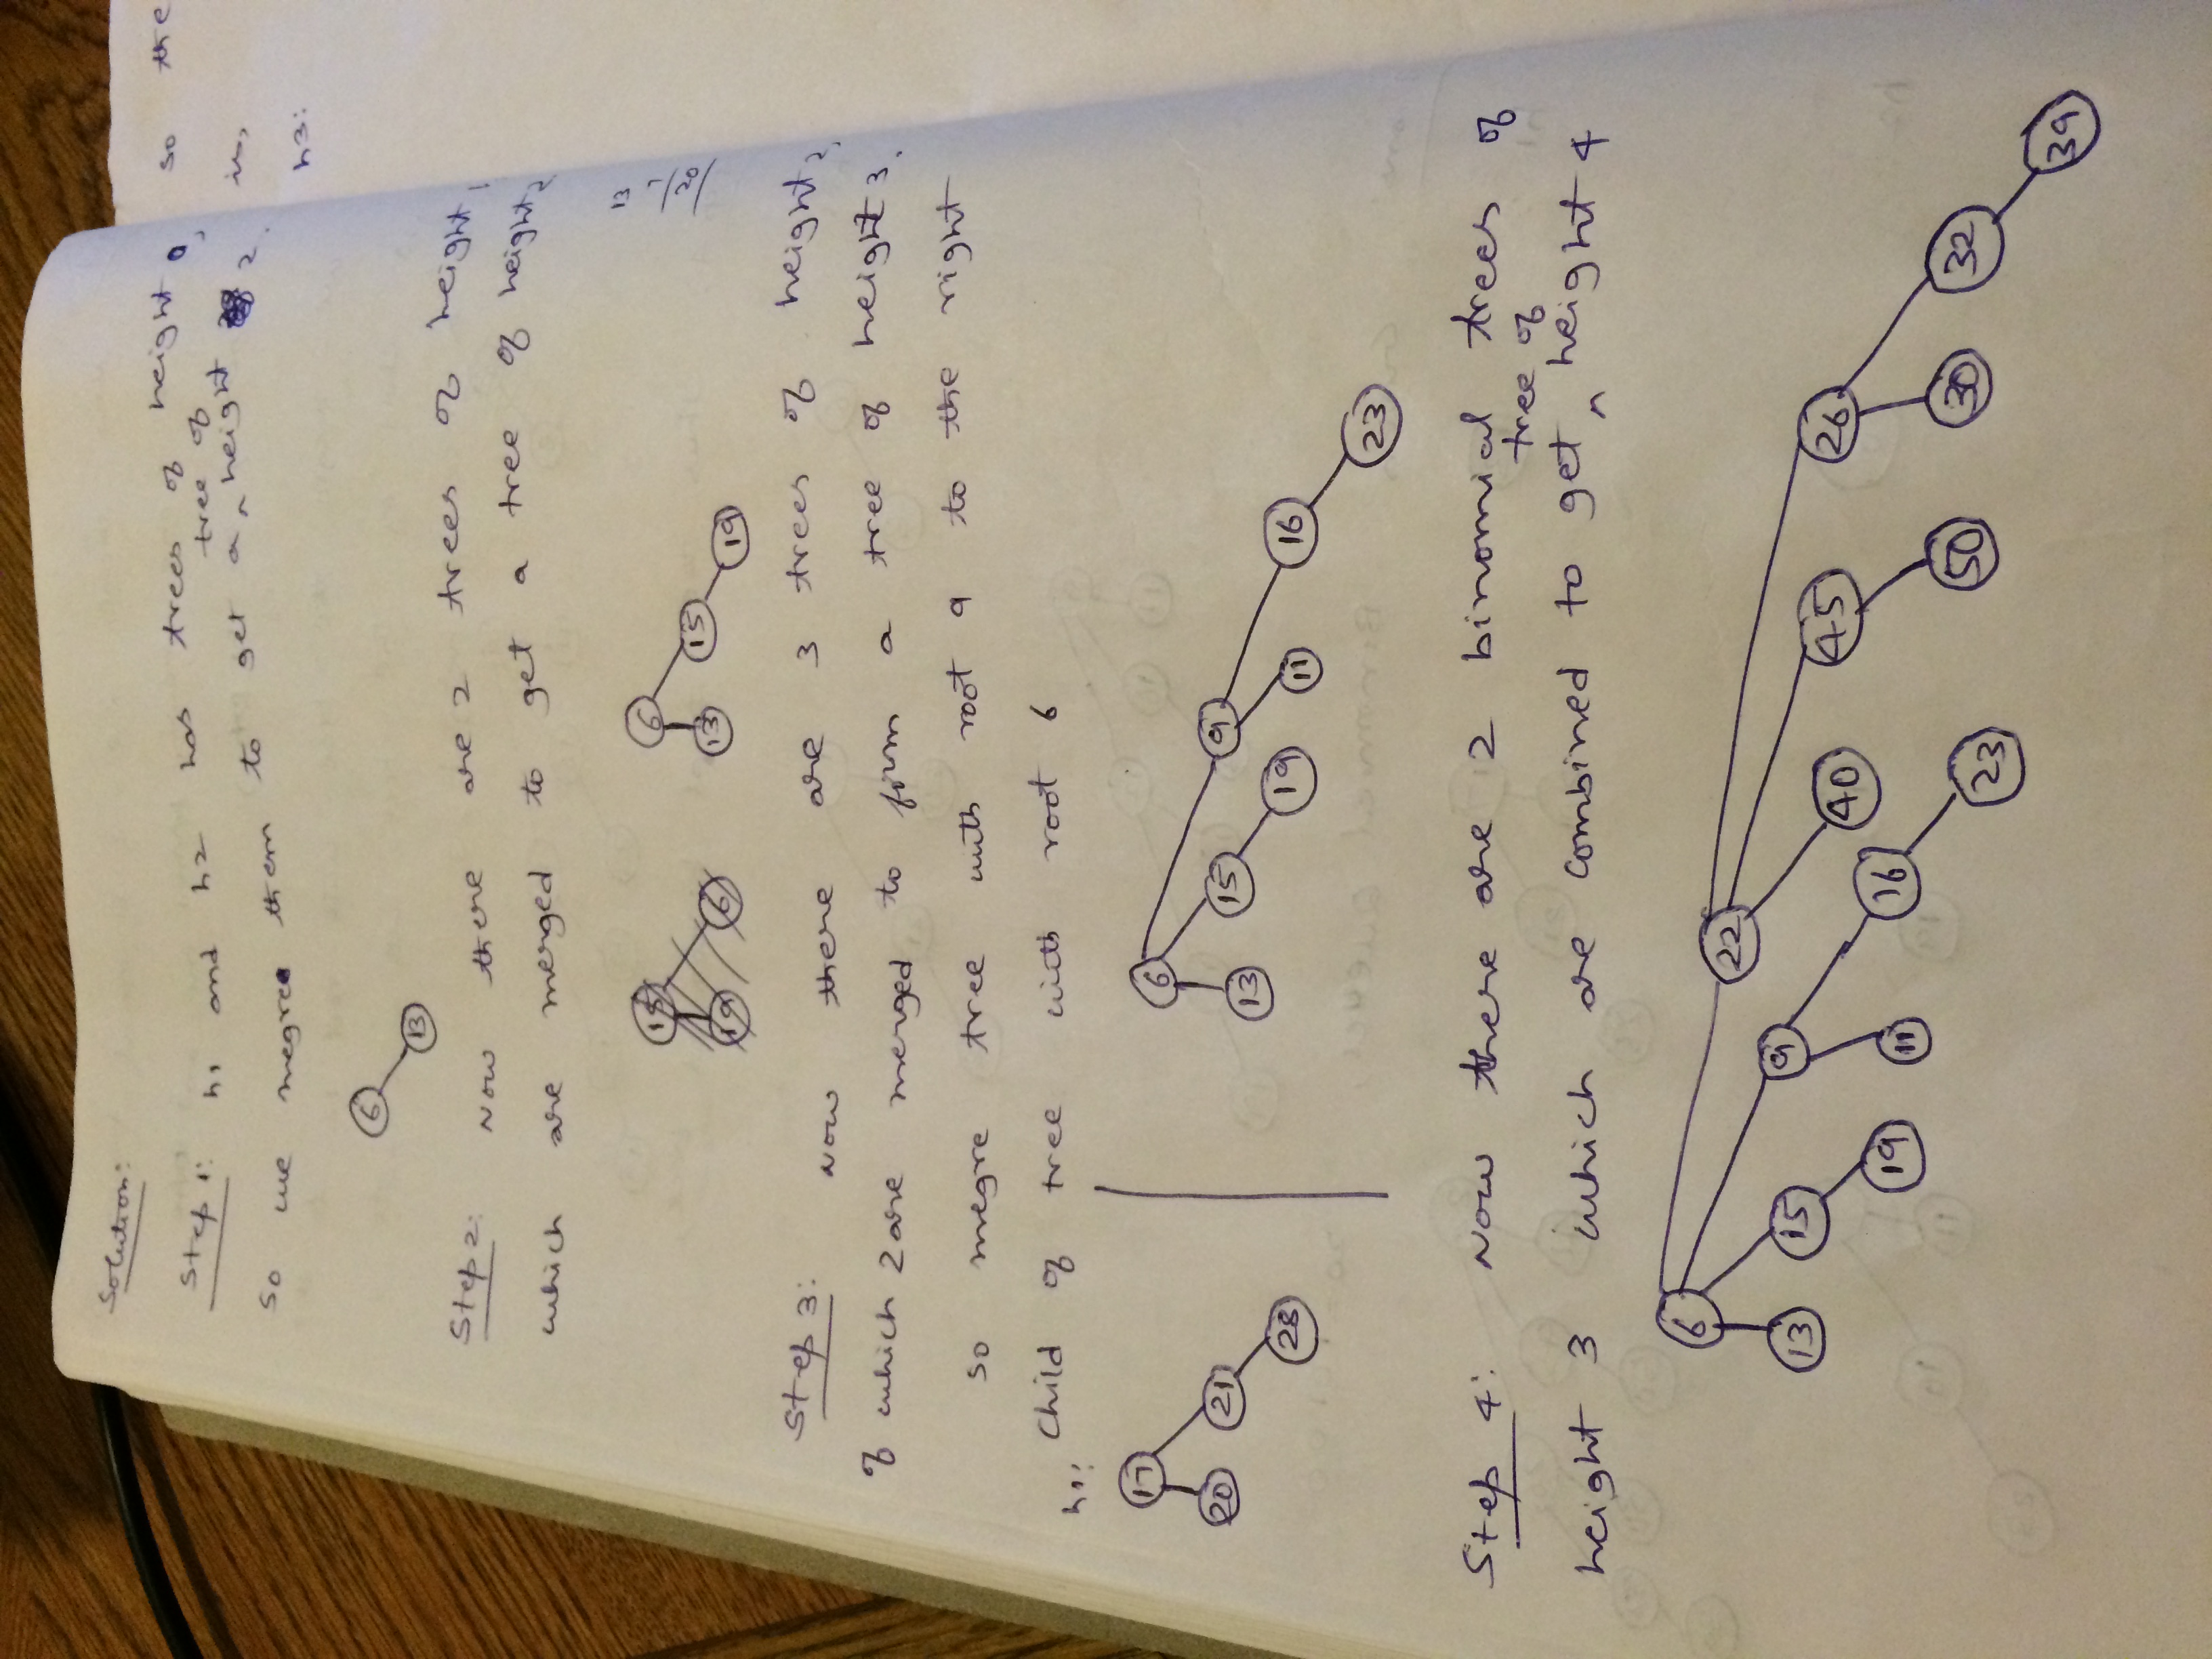 Solution:
Step 1: h1 and h2 has trees of height 0,
tree of
so we megree them to get a ^ height 2.
6
13
Step 2: Now there are 2 trees of height 1
which are merged to get a tree of height 2
15
19 6
6
13 15
19
Step 3: Now there are 3 trees of height 2,
of which 2 are merged to form a tree of height 3.
so megre tree with root 9 to the right
Child of tree with root 6
h1:
17
20 21
28
6
13 15 9
19 11 16
23
Step 4: Now there are 2 binomial trees of
tree of
height 3 which are combined to get ^ height 4
6 22
13 15 9 40 45 26
19 11 16 50 30 32
23 39
so the
is,
h3:
13
20